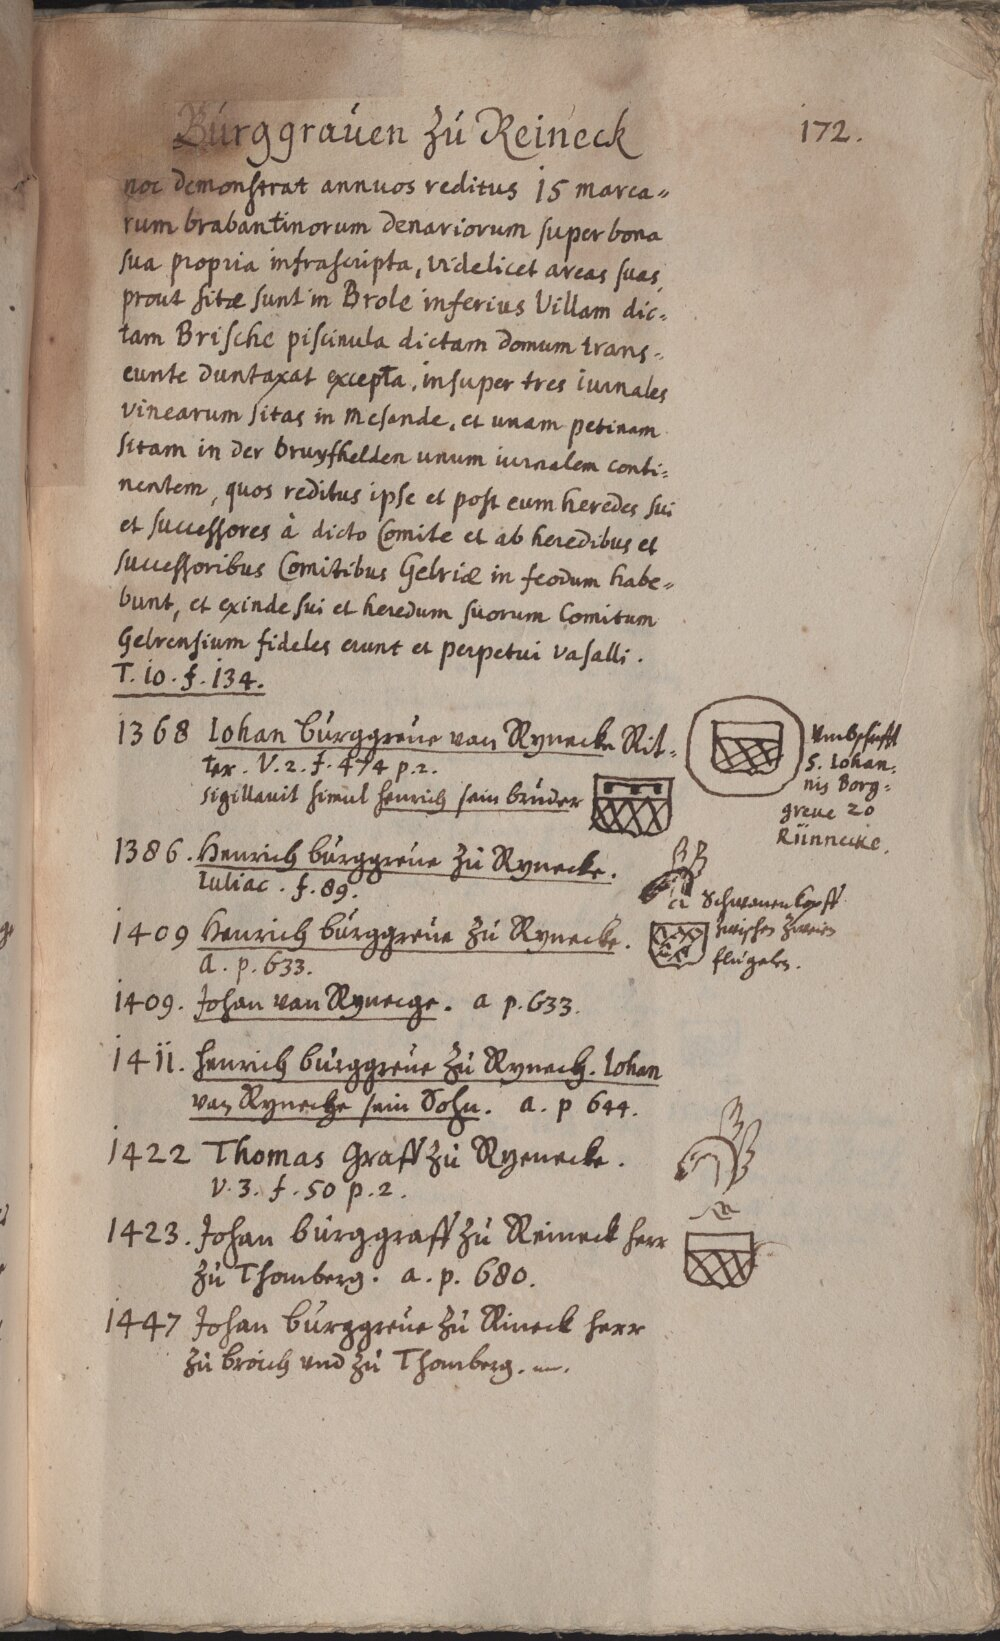 Burggraven zu Reineck
172.
noc demonstrat annuos reditus 15 marca=
rum brabantinorum denariorum super bona
sua propria infrascripta, videlicet areas suas,
prout sitæ sunt in Brole inferius Villam dic=
tam Brische piscinula dictam domum trans=
eunte duntaxat excepta, insuper tres iurnales
vinearum sitas in Mesende, et unam petinam
sitam in der bruyfhelden unum iurnalem conti=
nentem, quos reditus ipse et post eum heredes sui
et successores à dicto Comite et ab heredibus et
successoribus Comitibus Gelriæ in feodum habe=
bunt, et exinde sui et heredum suorum Comitum
Gelrensium fideles erunt et perpetui vasalli.
T. 10. f. 134.
1368 Iohan burggreve van Rynecke Rit=
ter. V. 2. f. 474 p. 2.
sigillavit simul henrich sein bruder
Umbschrifft
S. Iohan=
nis Borg=
greve zo
Rünnecke.
1386. Henrich burggreve zu Rynecke.
Iuliac. f. 89.
Schwanenkopff
zwischen zweien
flugelen.
1409 Henrich burggreve zu Rynecke.
a. p. 633.
1409. Johan van Rynecge. a p. 633.
1411. henrich burggreve zu Ryneck. Iohan
van Rynecke sein Sohn. a. p 644.
1422 Thomas Graff zu Ryenecke.
V. 3. f. 50 p. 2.
1423. Johan burggraff zu Reineck herr
zu Thomberg. a. p. 680.
1447 Johan burggreve zu Rineck herr
zu broich und zu Thomberg.